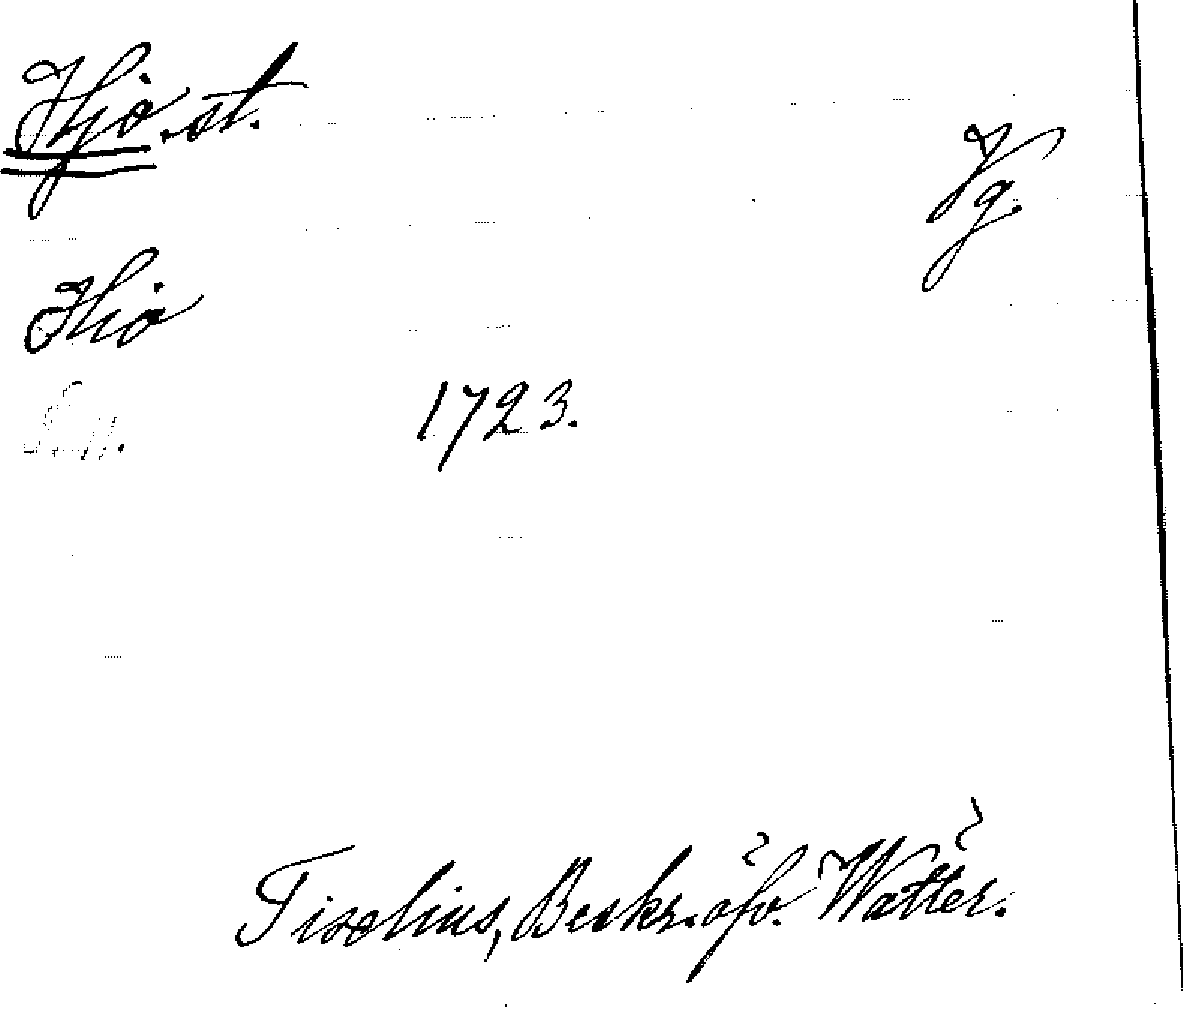 Hjo. st.
Vg.
Hio
1723.
Tiselius, Beskr. öfv. Wätter.